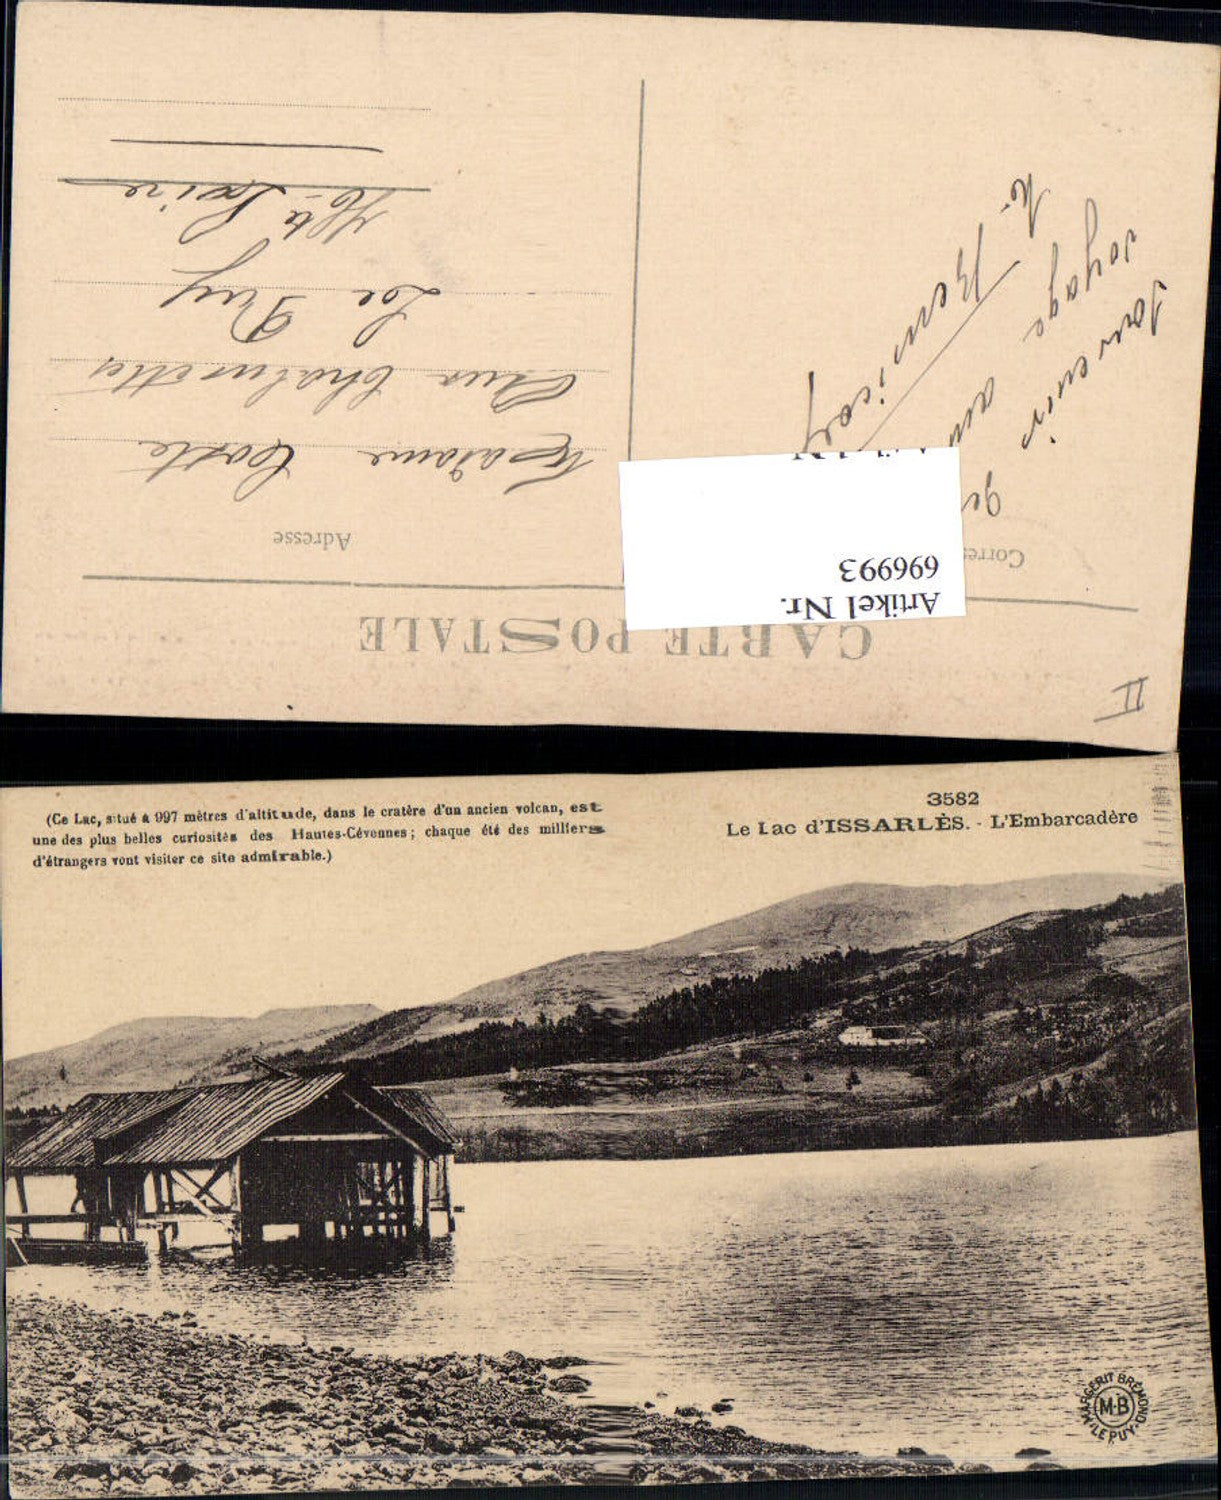 CARTE POSTALE
Adresse
Madame Coste
Rue Chalmette
Le Puy
Hte Loire
Souvenir
voyage au
Artikel Nr.
696993
II
3582
Le Lac d'ISSARLÈS. - L'Embarcadère
(Ce Lac, situé à 997 mètres d'altitude, dans le cratère d'un ancien volcan, est
une des plus belles curiosités des Hautes-Cévennes ; chaque été des milliers
d'étrangers vont visiter ce site admirable.)
MARGERIT BRÉMOND
M·B
LE PUY